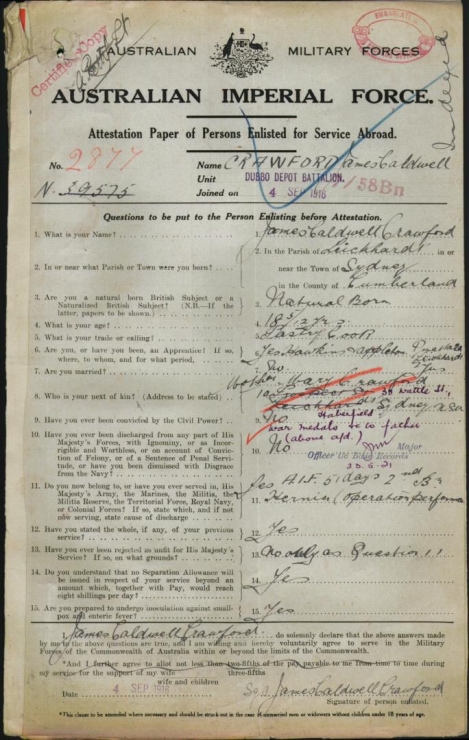 Certified Copy
AUSTRALIAN MILITARY FORCES
AUSTRALIAN IMPERIAL FORCE.
Indexed
Attestation Paper of Persons Enlisted for Service Abroad.
No. 2877 Name CRAWFORD James Caldwell
Unit DUBBO DEPOT BATTALION. 58Bn
N. 39575 Joined on 4 SEP 1918
Questions to be put to the Person Enlisting before Attestation.
1. What is your Name? 1. James Caldwell Crawford
2. In or near what Parish or Town were you born? 2. In the Parish of Leichhardt in or
near the Town of Sydney
in the County of Cumberland
3. Are you a natural born British Subject or a
Naturalized British Subject? (N.B.—If the
latter, papers to be shown.) 3. Natural Born
4. What is your age? 4. 18 5/12 yrs
5. What is your trade or calling? 5. Pastry Cook
6. Are you, or have you been, an Apprentice? If so,
where, to whom, and for what period, 6. Yes
Leichhardt
7. Are you married? 7. No
8. Who is your next of kin? (Address to be stated) 8. Mother Mary Crawford
38 Wattle St,
Leichhardt Sydney
Haberfield
9. Have you ever been convicted by the Civil Power? 9. No
war medals &c to father
(above afd.)
10. Have you ever been discharged from any part of His
Majesty's Forces, with Ignominy, or as Incor-
rigible and Worthless, or on account of Convic-
tion of Felony, or of a Sentence of Penal Servi-
tude, or have you been dismissed with Disgrace
from the Navy? 10. No
Major
Officer i/c Base Records
11. Do you now belong to, or have you ever served in, His
Majesty's Army, the Marines, the Militia, the
Militia Reserve, the Territorial Force, Royal Navy,
or Colonial Forces? If so, state which, and if not
now serving, state cause of discharge 11. Yes A.I.F. 51 days 2nd Bn
Hernia (Operation performed
12. Have you stated the whole, if any, of your previous
service? 12. Yes
13. Have you ever been rejected as unfit for His Majesty's
Service? If so, on what grounds? 13. No only as Question 11
14. Do you understand that no Separation Allowance will
be issued in respect of your service beyond an
amount which, together with Pay, would reach
eight shillings per day? 14. Yes
15. Are you prepared to undergo inoculation against small-
pox and enteric fever? 15. Yes
I, James Caldwell Crawford do solemnly declare that the above answers made
by me to the above questions are true, and I am willing and hereby voluntarily agree to serve in the Military
Forces of the Commonwealth of Australia within or beyond the limits of the Commonwealth.
*And I further agree to allot not less than two-fifths of the pay payable to me from time to time during
three-fifths
my service for the support of my wife
wife and children
Date 4 SEP 1918 Sgd James Caldwell Crawford
Signature of person enlisted.
*This clause to be amended where necessary and should be struck out in the case of unmarried men or widowers without children under 18 years of age.